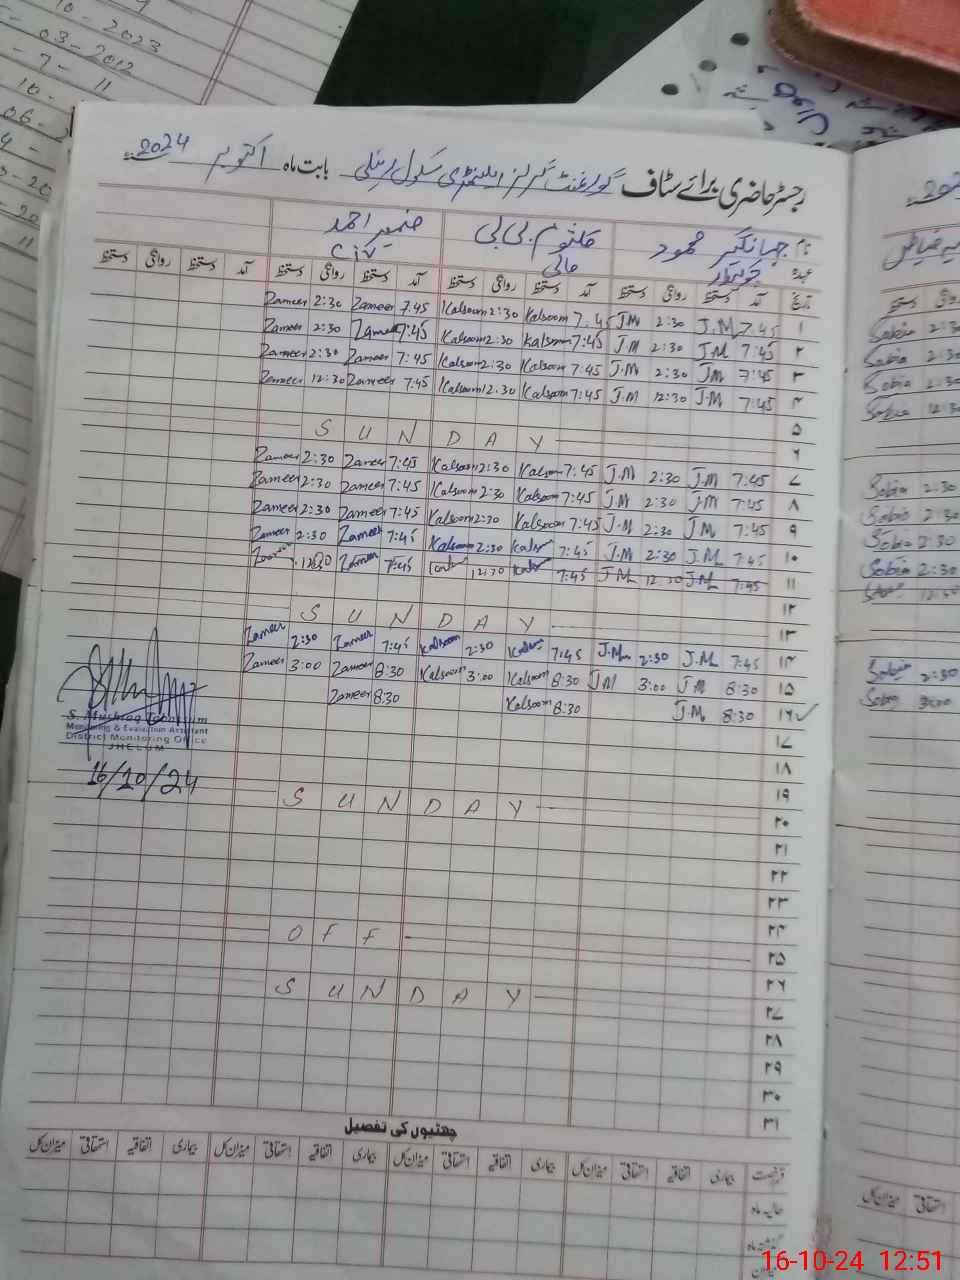 10 - 2023
03 - 2012
7 - 11
10 -
06 -
رجسٹر حاضری برائے سٹاف گورنمنٹ گرلز ایلیمنٹری سکول بابت ماہ اکتوبر 2024
نام جہانگیر محمود کلثوم بی بی ضمیر احمد
عہدہ چوکیدار مالی C.iv
تاریخ آمد دستخط روانگی دستخط آمد دستخط روانگی دستخط آمد دستخط روانگی دستخط آمد دستخط روانگی دستخط
۱ 7.45 J.M 2:30 J.M 7.45 Kalsoom 2:30 Kalsoom 7.45 Zameer 2:30 Zameer
۲ 7:45 J.M 2:30 J.M 7:45 Kalsoom 2:30 Kalsoom 7:45 Zameer 2:30 Zameer
۳ 7:45 J.M 2:30 J.M 7:45 Kalsoom 2:30 Kalsoom 7:45 Zameer 2:30 Zameer
۴ 7:45 J.M 12:30 J.M 7:45 Kalsoom 12.30 Kalsoom 7.45 Zameer 12:30 Zameer
۵
۶ S U N D A Y
۷ 7:45 J.M 2:30 J.M 7:45 Kalsoom 2:30 Kalsoom 7:45 Zameer 2:30 Zameer
۸ 7:45 J.M 2:30 J.M 7:45 Kalsoom 2:30 Kalsoom 7:45 Zameer 2:30 Zameer
۹ 7:45 J.M 2:30 J.M 7:45 Kalsoom 2:30 Kalsoom 7:45 Zameer 2:30 Zameer
۱۰ 7:45 J.M 2:30 J.M 7:45 Kalsoom 2:30 Kalsoom 7:45 Zameer 2:30 Zameer
۱۱ 7:45 J.M 12:30 J.M 7:45 12:30 7:45 Zameer 12:30
۱۲
۱۳ S U N D A Y
۱۴ 7:45 J.M 2:30 J.M 7:45 2:30 Kalsoom 7:45 Zameer 2:30 Zameer
۱۵ 8:30 J.M 3:00 J.M 8:30 Kalsoom 3:00 Kalsoom 8:30 Zameer 3:00 Zameer
۱۶ 8:30 J.M 8:30 Kalsoom 8:30 Zameer
۱۷
۱۸
۱۹
۲۰ S U N D A Y
۲۱
۲۲
۲۳
۲۴
۲۵ O F F
۲۶
۲۷ S U N D A Y
۲۸
۲۹
۳۰
۳۱
Monitoring & Evaluation Assistant
District Monitoring Office
JHELUM
16/10/24
چھٹیوں کی تفصیل
بیماری اتفاقیہ استحقاقی میزان کل بیماری اتفاقیہ استحقاقی میزان کل بیماری اتفاقیہ استحقاقی میزان کل بیماری اتفاقیہ استحقاقی میزان کل
حالیہ ماہ
Sobia 2:30
Sobia 2:30
Sobia 2:30
Sobia 12:30
Sobia 2:30
Sobia 2:30
Sobia 2:30
Sobia 2:30
12:30
Sobia 2:30
Sobia 3:00
استحقاقی میزان کل
16-10-24 12:51